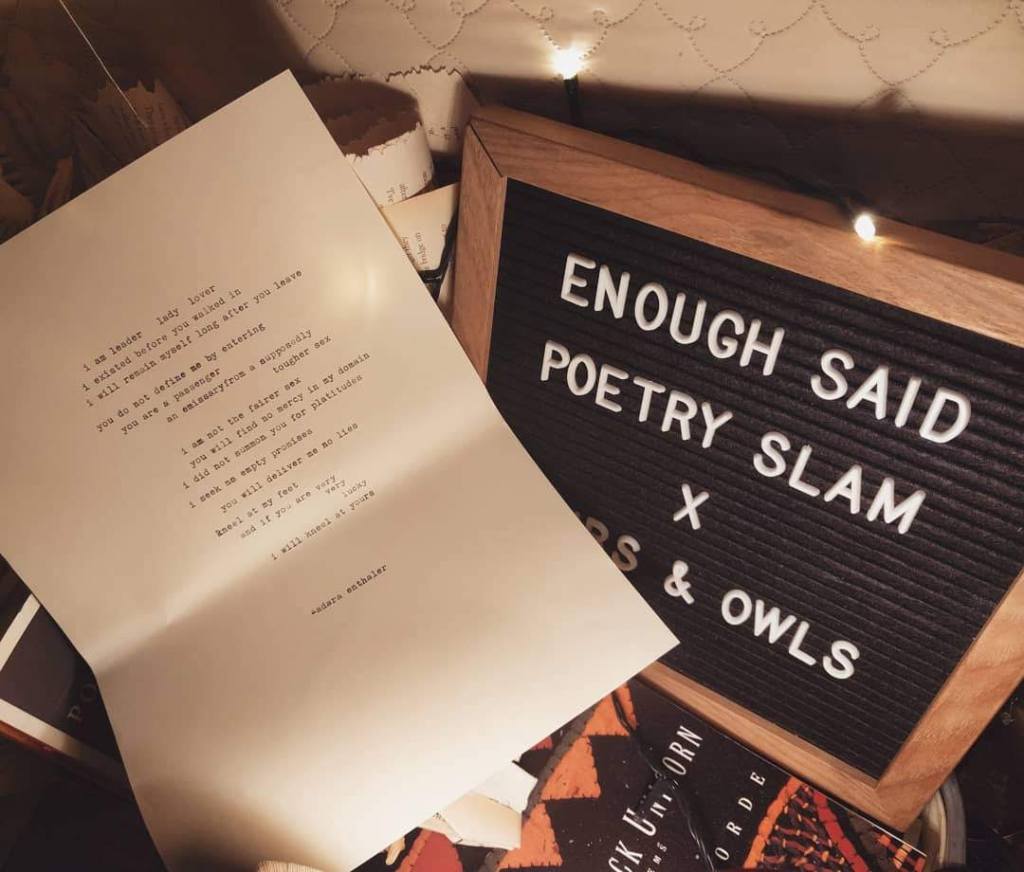 i am leader lady lover
i existed before you walked in
i will remain myself long after you leave
you do not define me by entering
you are a passenger
an emissaryfrom a supposedly
tougher sex
i am not the fairer sex
you will find no mercy in my domain
i did not summon you for platitudes
i seek no empty promises
you will deliver me no lies
kneel at my feet
and if you are very
very lucky
i will kneel at yours
-adara enthaler
ENOUGH SAID
POETRY SLAM
X
RS & OWLS
CK UNICORN
EMS
ORDE
PO